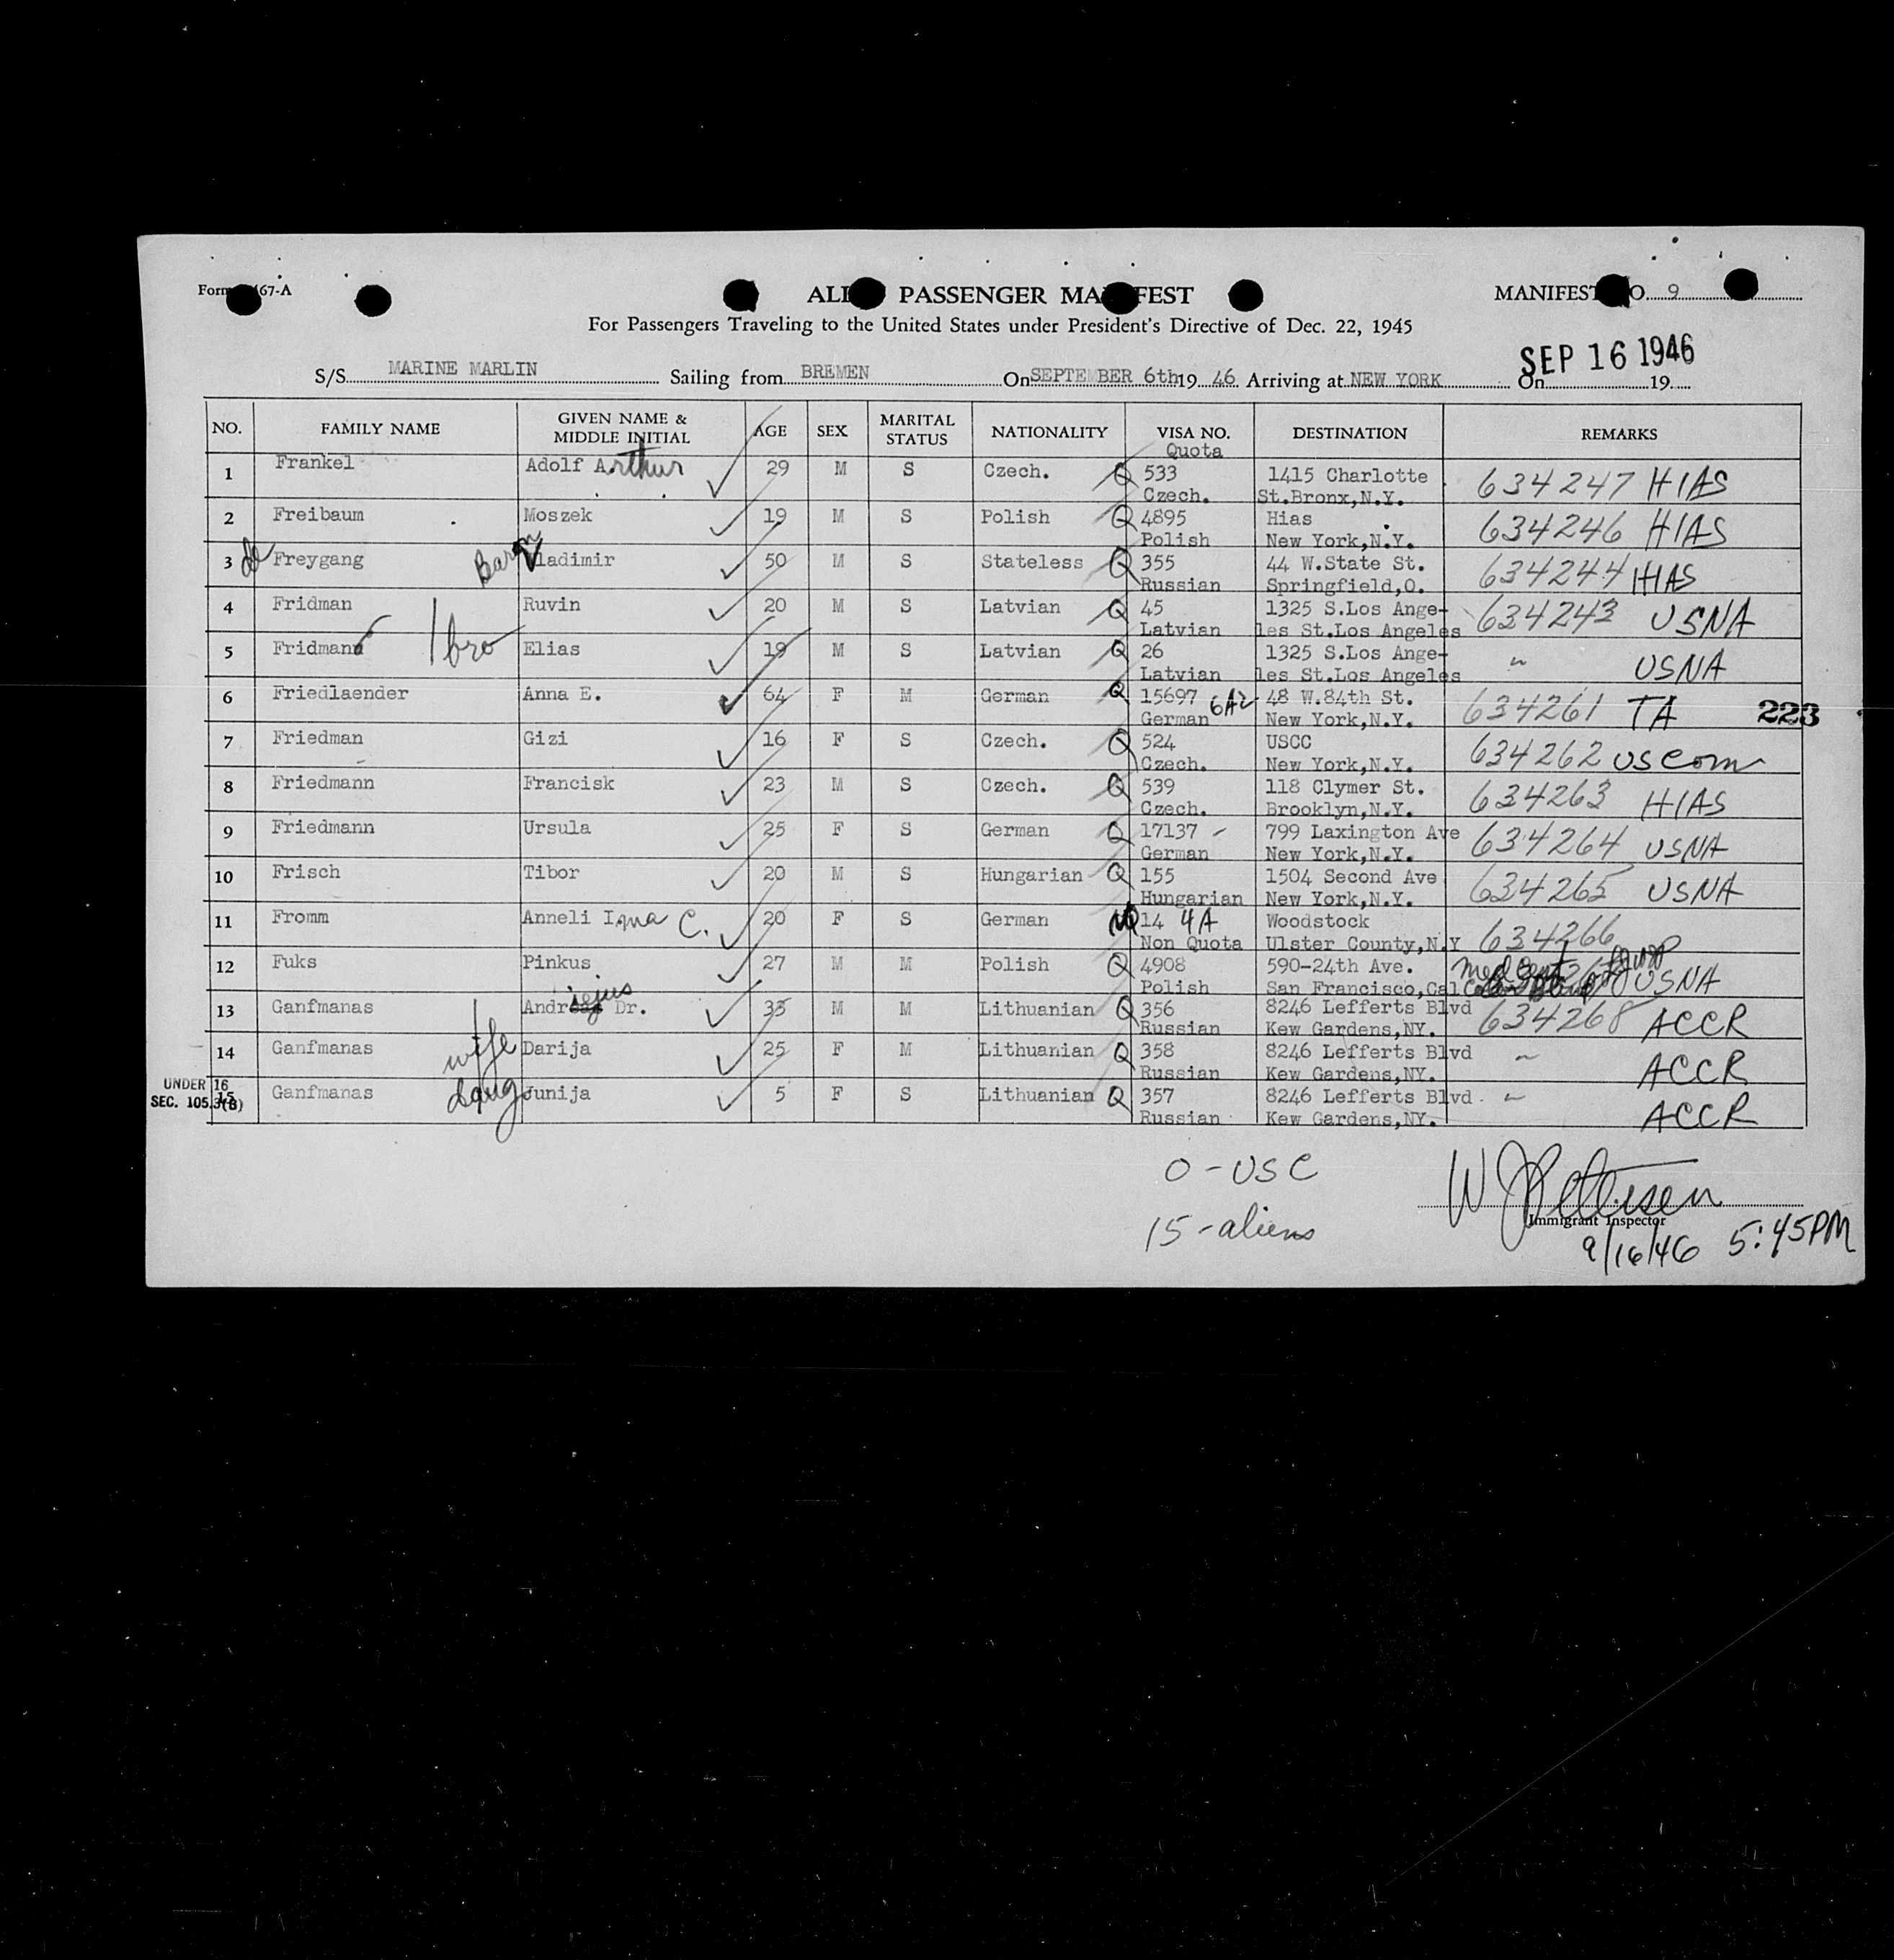 Form 67-A
ALIEN PASSENGER MANIFEST
MANIFEST NO. 9
For Passengers Traveling to the United States under President's Directive of Dec. 22, 1945
SEP 16 1946
S/S MARINE MARLIN Sailing from BREMEN On SEPTEMBER 6th 19 46 Arriving at NEW YORK On 19
NO. FAMILY NAME GIVEN NAME & MIDDLE INITIAL AGE SEX MARITAL STATUS NATIONALITY VISA NO. DESTINATION REMARKS
Quota
1 Frankel Adolf Arthur 29 M S Czech. Q 533 1415 Charlotte 634247 HIAS
Czech. St.Bronx,N.Y.
2 Freibaum Moszek 19 M S Polish Q 4895 Hias 634246 HIAS
Polish New York,N.Y.
3 de Freygang Baron Vladimir 50 M S Stateless Q 355 44 W.State St. 634244 HIAS
Russian Springfield,O.
4 Fridman Ruvin 20 M S Latvian Q 45 1325 S.Los Ange- 634243 USNA
Latvian les St.Los Angeles
5 Fridmann bro Elias 19 M S Latvian Q 26 1325 S.Los Ange- " USNA
Latvian les St.Los Angeles
6 Friedlaender Anna E. 64 F M German Q 15697 6A2 48 W.84th St. 634261 TA 223
German New York,N.Y.
7 Friedman Gizi 16 F S Czech. Q 524 USCC 634262 US Com
Czech. New York,N.Y.
8 Friedmann Francisk 23 M S Czech. Q 539 118 Clymer St. 634263 HIAS
Czech. Brooklyn,N.Y.
9 Friedmann Ursula 25 F S German Q 17137 799 Laxington Ave 634264 USNA
German New York,N.Y.
10 Frisch Tibor 20 M S Hungarian Q 155 1504 Second Ave 634265 USNA
Hungarian New York,N.Y.
11 Fromm Anneli Irma C. 20 F S German NQ 14 4A Woodstock 634266
Non Quota Ulster County,N.Y
12 Fuks Pinkus 27 M M Polish Q 4908 590-24th Ave. Med Cert USNA
Polish San Francisco,Cal
13 Ganfmanas Andrejus Dr. 33 M M Lithuanian Q 356 8246 Lefferts Blvd 634268 ACCR
Russian Kew Gardens,NY.
14 Ganfmanas wife Darija 25 F M Lithuanian Q 358 8246 Lefferts Blvd " ACCR
Russian Kew Gardens,NY.
UNDER 16
SEC. 105.3(B)
15 Ganfmanas daug Junija 5 F S Lithuanian Q 357 8246 Lefferts Blvd. " ACCR
Russian Kew Gardens,NY.
0 - USC
15 - aliens
W J Pettersen
Immigrant Inspector
9/16/46 5:45PM